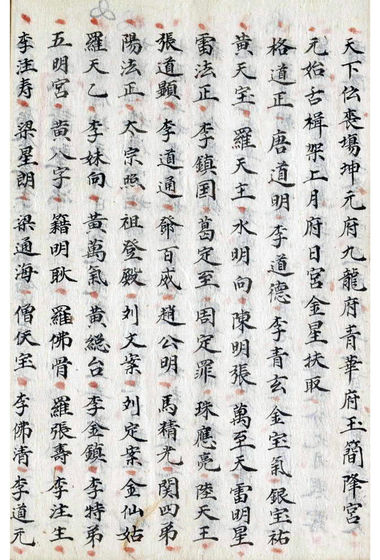 天下伝喪場坤元府九龍府青華府玉簡降宮
元始古楫架上月府日宮金星扶取
格道正 唐道明 李道德 李青玄 金宝氣 銀宝祐
黄天宝 羅天主 水明向 陳明張 萬至天 雷明星
雷法正 李鎮国 葛定至 周定罪 珠應亮 陸天王
張道顯 李道通 鄧百威 趙公明 馬精光 関四弟
陽法正 太宗照 祖登殿 刘文案 刘定案 金仙姑
羅天乙 李妹向 黄萬氣 黄総台 李金鎮 李特弟
五明宮 黄八字 籍明耿 羅佛骨 羅張壽 李注生
李注寿 梁星朗 梁通海 僧伕宝 李佛清 李道元